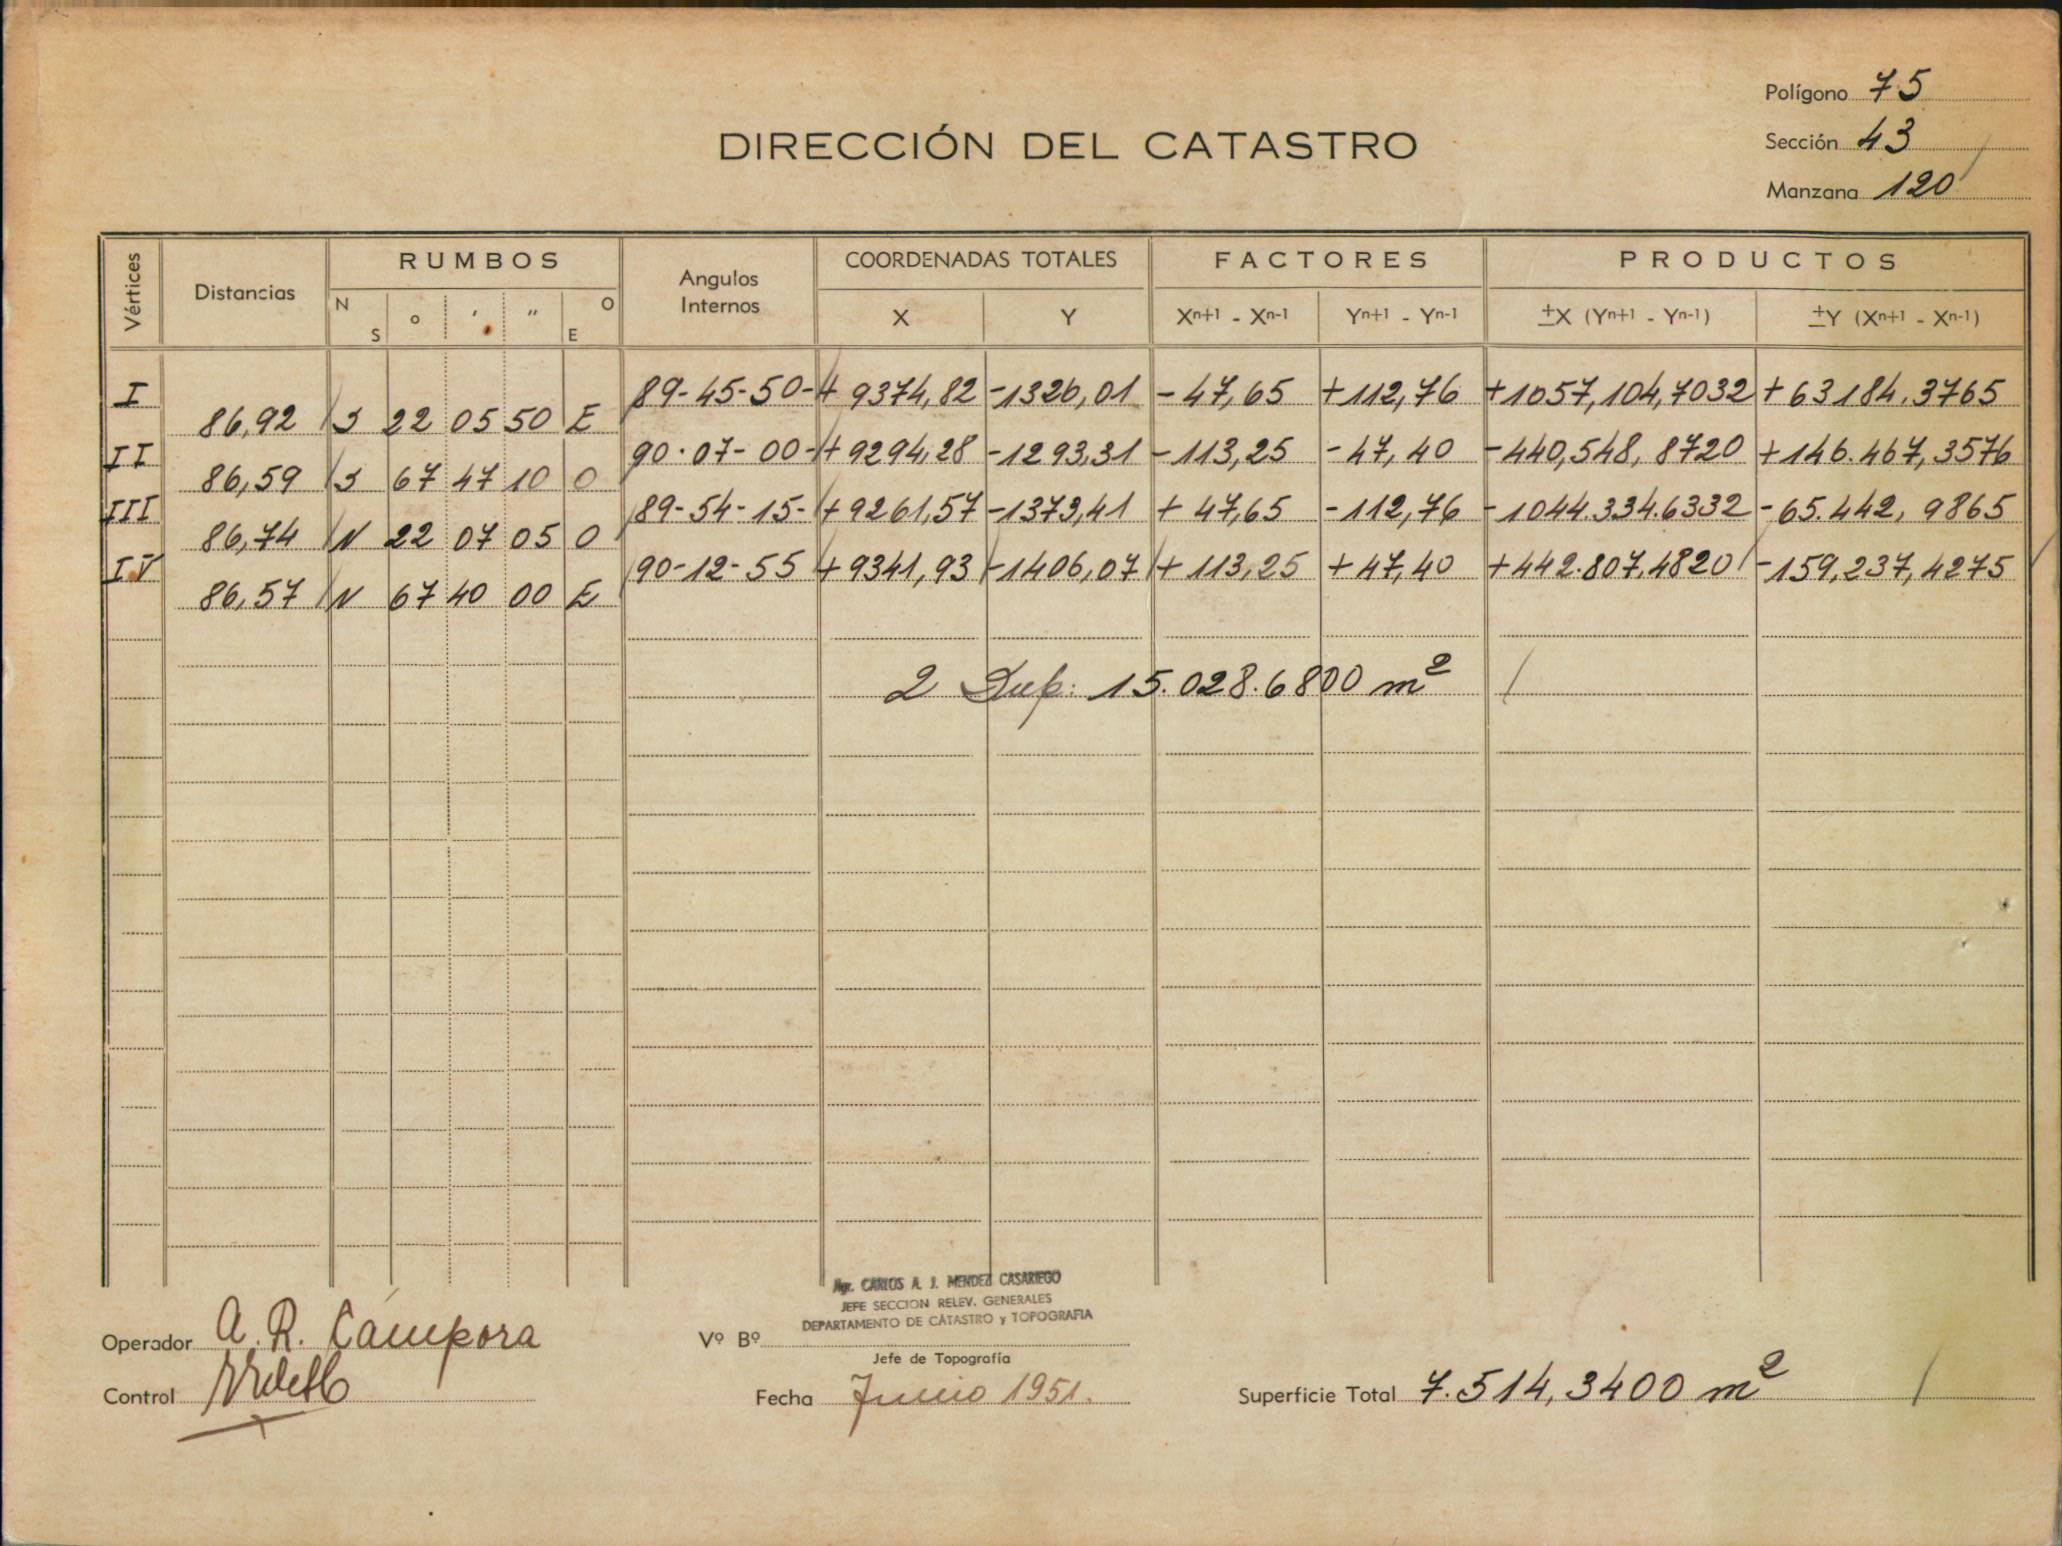 DIRECCIÓN DEL CATASTRO
Polígono 75
Sección 43
Manzana 120
Vértices Distancias RUMBOS Angulos Internos COORDENADAS TOTALES FACTORES PRODUCTOS
N S o ' " O E X Y Xn+1 - Xn-1 Yn+1 - Yn-1 ±X (Yn+1 - Yn-1) ±Y (Xn+1 - Xn-1)
I 89-45-50- + 9374,82 -1326,01 - 47,65 +112,76 +1057,104,7032 + 63184,3765
86,92 S 22 05 50 E
II 90-07-00- + 9294,28 -1293,31 -113,25 -47,40 -440,548,8720 +146.467,3576
86,59 S 67 47 10 O
III 89-54-15- + 9261,57 -1373,41 + 47,65 -112,76 -1044.334.6332 -65.442,9865
86,74 N 22 07 05 O
IV 90-12-55 + 9341,93 -1406,07 + 113,25 + 47,40 +442.807,4820 -159,237,4275
86,57 N 67 40 00 E
2 Sup: 15.028.6800 m²
Agr. CARLOS A. J. MENDEZ CASARIEGO
JEFE SECCION RELEV. GENERALES
DEPARTAMENTO DE CATASTRO y TOPOGRAFIA
Operador A. R. Cámpora
Vº Bº
Jefe de Topografía
Control
Fecha Junio 1951.
Superficie Total 7.514,3400 m²